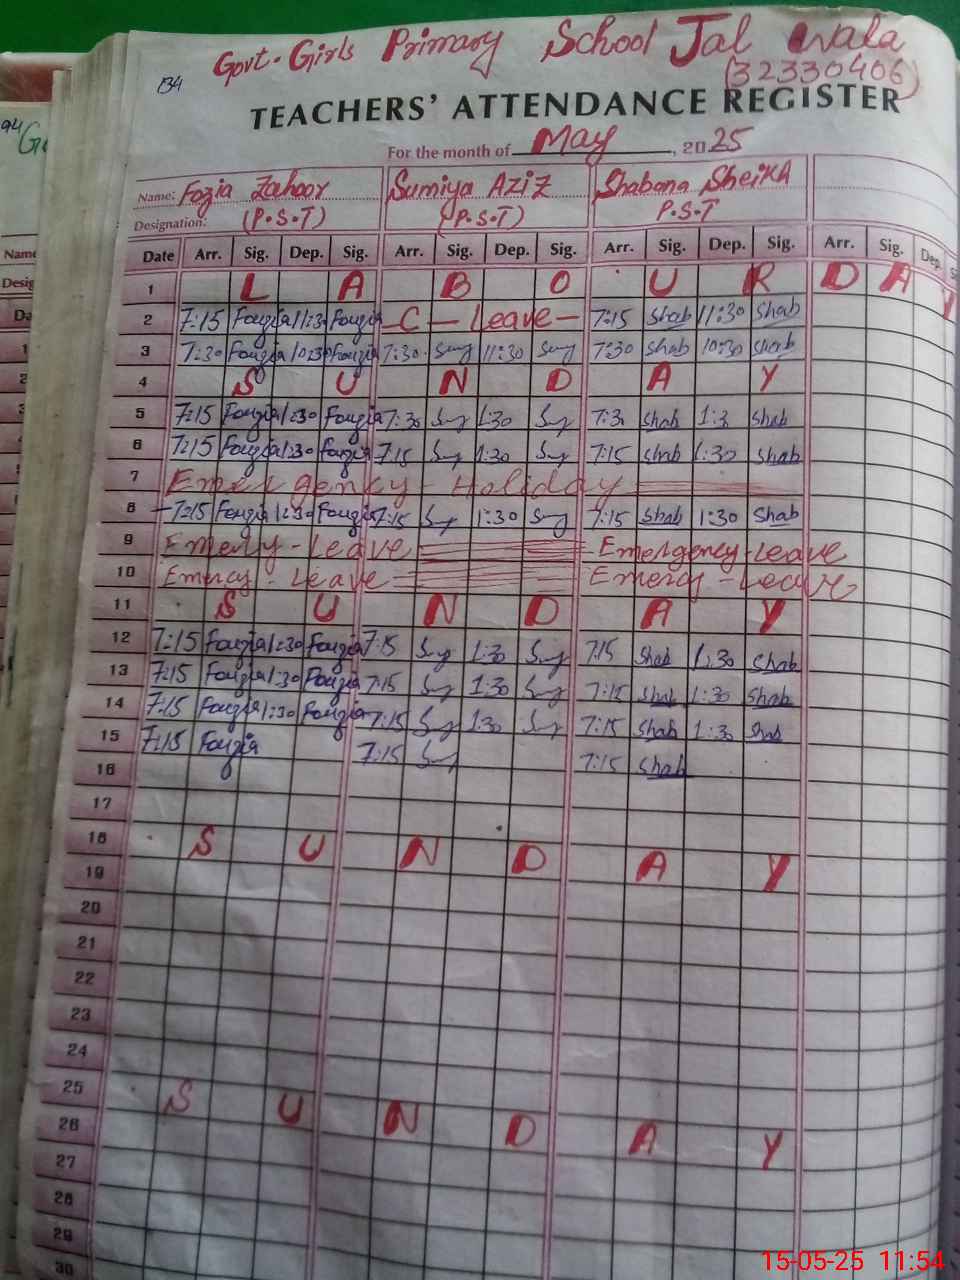 Govt. Girls Primary School Jal wala
134
(32330406)
TEACHERS' ATTENDANCE REGISTER
94
For the month of May, 2025
Name: Fozia Zahoor Sumiya AZIZ Shabana Sheikh
Designation: (P.S.T) (P.S.T) P.S.T
Date Arr. Sig. Dep. Sig. Arr. Sig. Dep. Sig. Arr. Sig. Dep. Sig. Arr. Sig. Dep.
1 L A B O U R D A Y
2 7:15 Fouzia 11:30 Fouzia C - Leave - 7:15 Shab 11:30 Shab
3 7:30 Fouzia 10:30 Fouzia 7:30 11:30 7:30 Shab 10:30 Shab
4 S U N D A Y
5 7:15 Fouzia 1:30 Fouzia 7:30 1:30 7:3 Shab 1:3 Shab
6 7:15 Fouzia 1:30 Fouzia 7:15 1:30 7:15 Shab 1:30 Shab
7 Emergency - Holiday
8 7:15 Fouzia 1:30 Fouzia 7:15 1:30 7:15 Shab 1:30 Shab
9 Emercy - Leave Emergency - Leave
10 Emercy - Leave Emercy - Leave
11 S U N D A Y
12 7:15 Fouzia 1:30 Fouzia 7:15 1:30 7:15 Shab 1:30 Shab
13 7:15 Fouzia 1:30 Fouzia 7:15 1:30 7:15 Shab 1:30 Shab
14 7:15 Fouzia 1:30 Fouzia 7:15 1:30 7:15 Shab 1:30 Shab
15 7:15 Fouzia 7:15 7:15 Shab
16
17
18 S U N D A Y
19
20
21
22
23
24
25 S U N D A Y
26
27
28
29
30
15-05-25 11:54